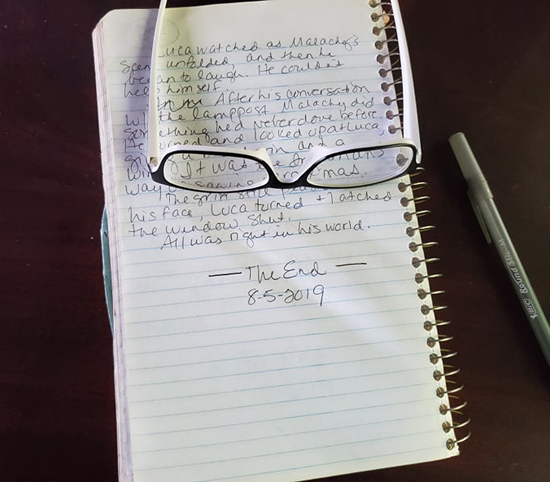 Luca watched as Malachy's
scene unfolded, and then he
began to laugh. He couldn't
help himself.
After his conversation
the lamppost Malachy did
something he'd never done before.
He turned and looked up at Luca,
and a
It was
way
The grin still
his face, Luca turned + latched
the window shut.
All was right in his world.
— The End —
8-5-2019
Round Stic